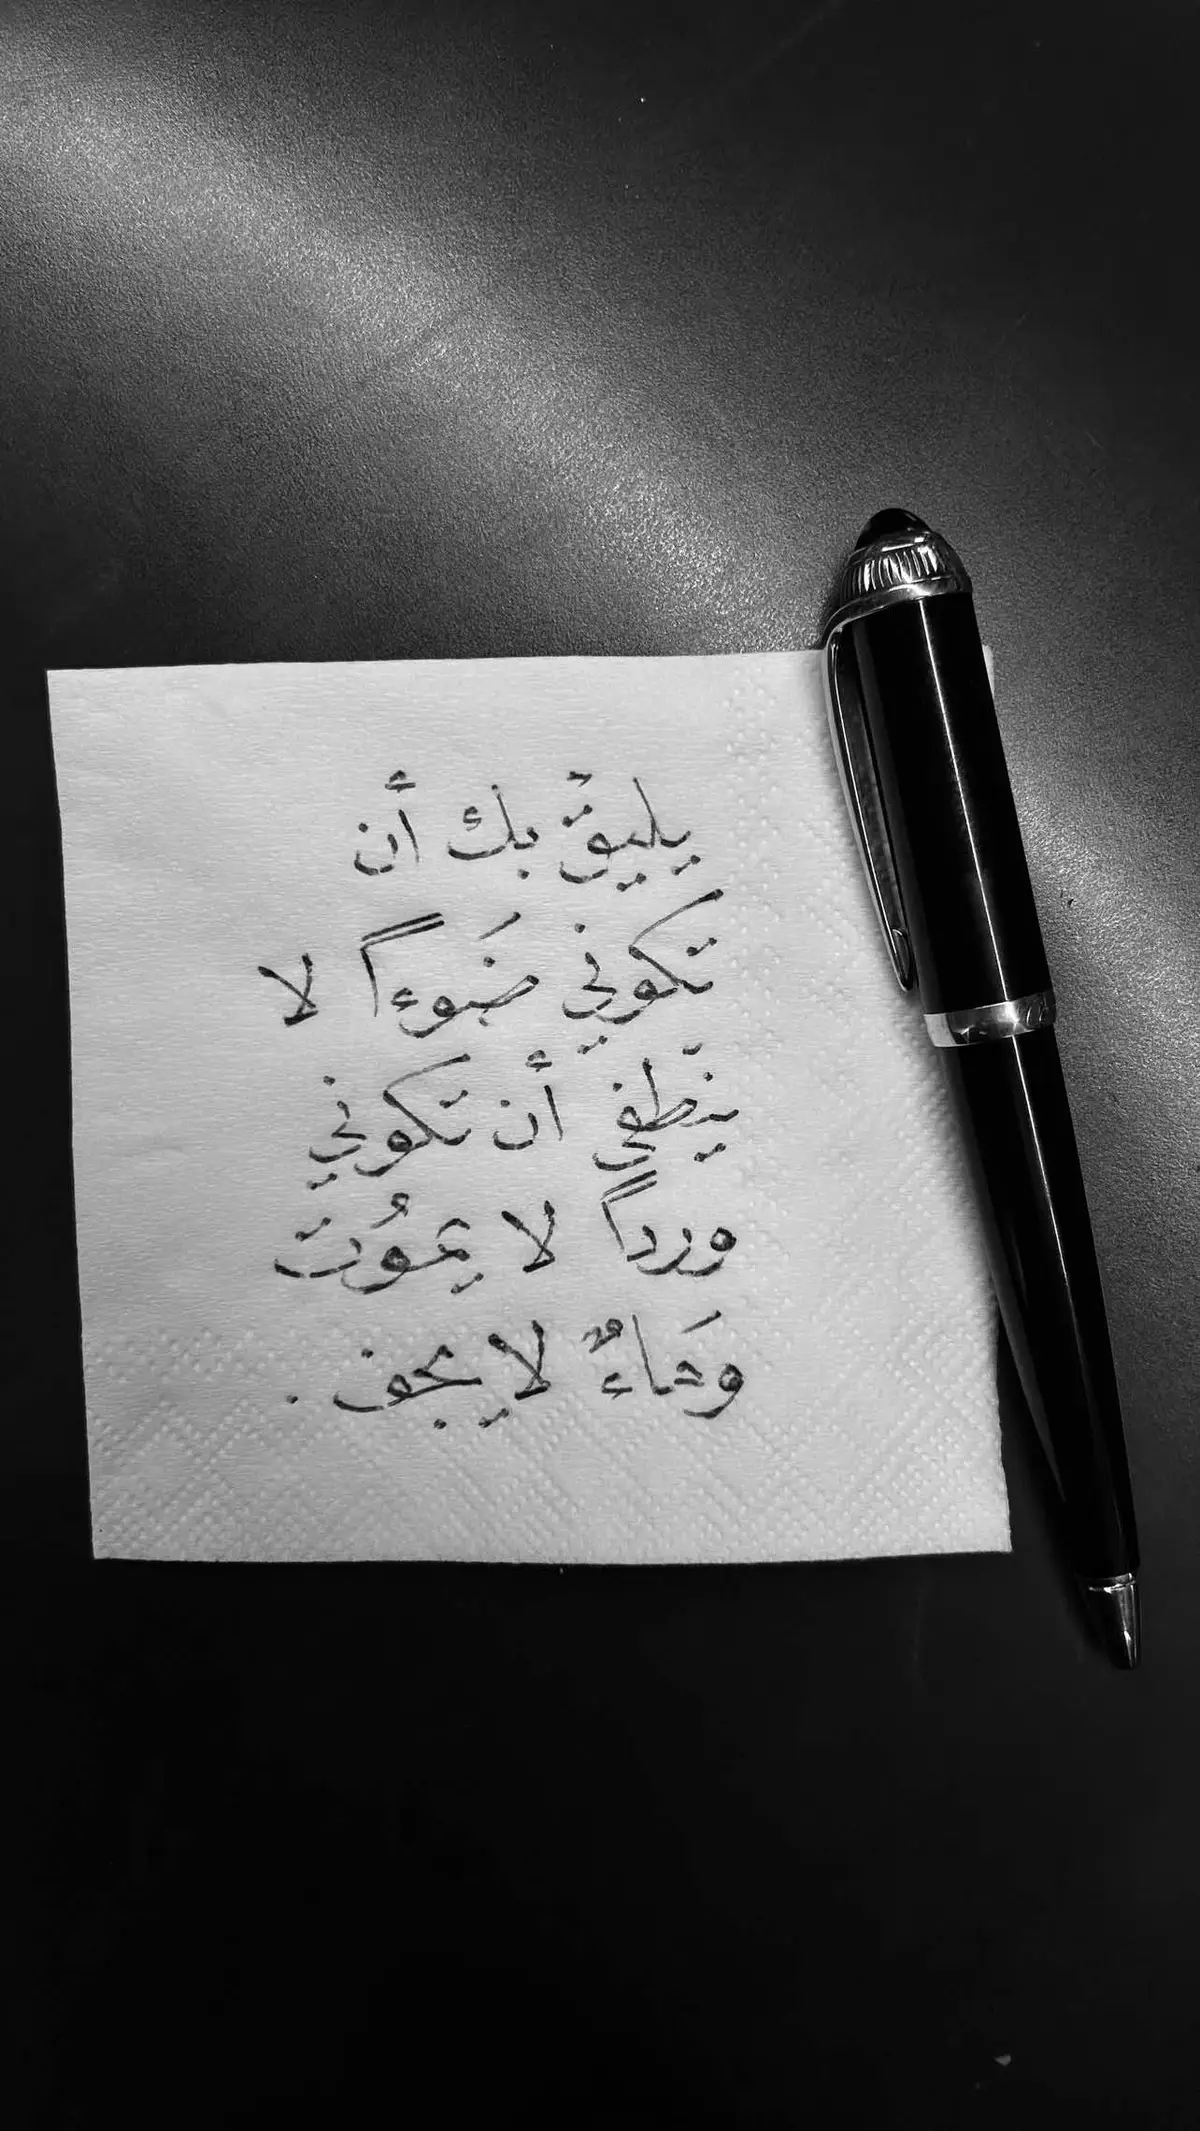 يليقُ بك أن
تكوني ضَوءاً لا
ينطفي أن تكوني
ورداً لا يموُت
وَماءً لا يجف .